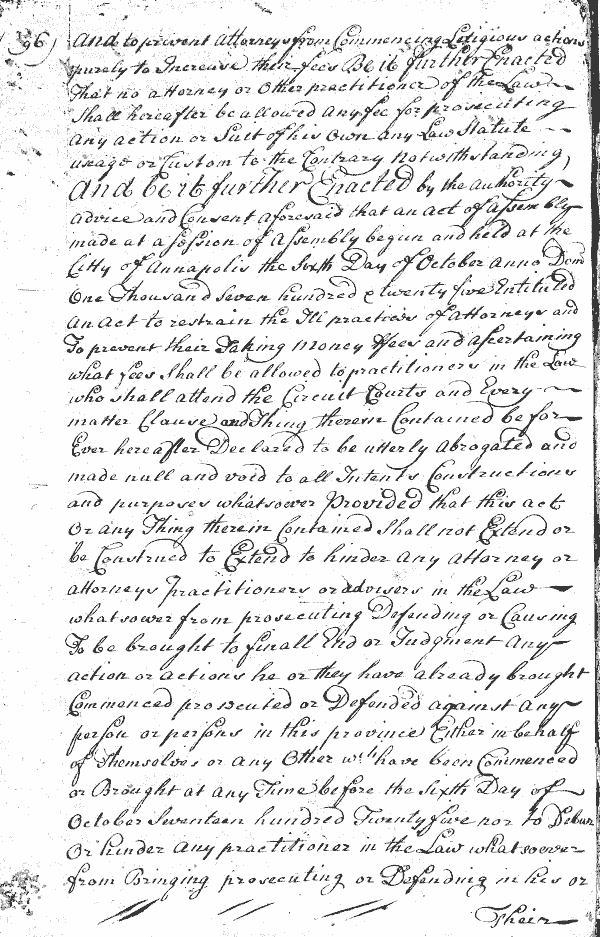 96)
and to prevent attorneys from Commencing Litigious actions
purely to Increase their fees Be it further Enacted
That no attorney or Other practitioner of the Law
Shall hereafter be allowed any fee for prosecuting
any action or Suit of his Own any Law Statute
usage or Custom to the Contrary notwithstanding,
And be it further Enacted by the authority
advice and Consent aforesaid that an act of assembly
made at a Session of Assembly begun and held at the
Citty of Annapolis the Sixth Day of October anno Dom
One Thousand Seven hundred & twenty five Entituled
an Act to restrain the Ill practices of attorneys and
To prevent their Taking money ffees and ascertaining
what fees Shall be allowed to practitioners in the Law
who shall attend the Circuit Courts and Every
matter Clause and Thing therein Contained be for
Ever hereafter Declared to be utterly abrogated and
made null and void to all Intents Constructions
and purposes whatsoever Provided that this act
Or any Thing therein Contained Shall not Extend or
be Construed to Extend to hinder any attorney or
attorneys Practitioners or advisers in the Law
whatsower from prosecuting Defending or Causing
To be brought to finall End or Judgment any
action or actions he or they have already brought
Commenced prosecuted or Defended against any
person or persons in this province Either in behalf
of themselves or any Other wch have been Commenced
or Brought at any Time before the Sixth Day of
October Seventeen hundred Twenty five nor to Debar
Or hinder any practitioner in the Law whatsoever
from Bringing prosecuting or Defending in his or
Their